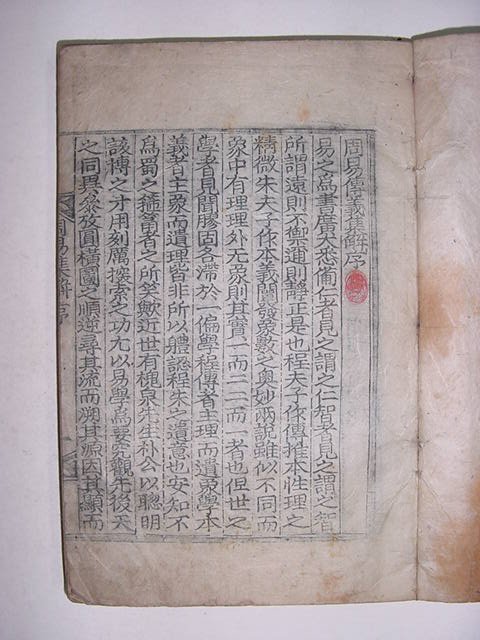 周易傳義集解序
易之爲書廣大悉備仁者見之謂之仁智者見之謂之智
所謂遠則不禦邇則靜正是也程夫子作傳推本性理之
精微朱夫子作本義闡發象數之奧妙兩說雖似不同而
象中有理理外无象則其實一而二二而一者也但世之
學者見聞膠固各滯於一偏學程傳者主理而遺象學本
義者主象而遺理皆非所以體認程朱之遺意也安知不
爲蜀之箍筩者之所笑歟近世有槐泉先生朴公以聰明
該博之才用刻厲探索之功尤以易學爲要究觀先後天
之同異參攷圓橫圖之順逆尋其流而溯其源因其顯而